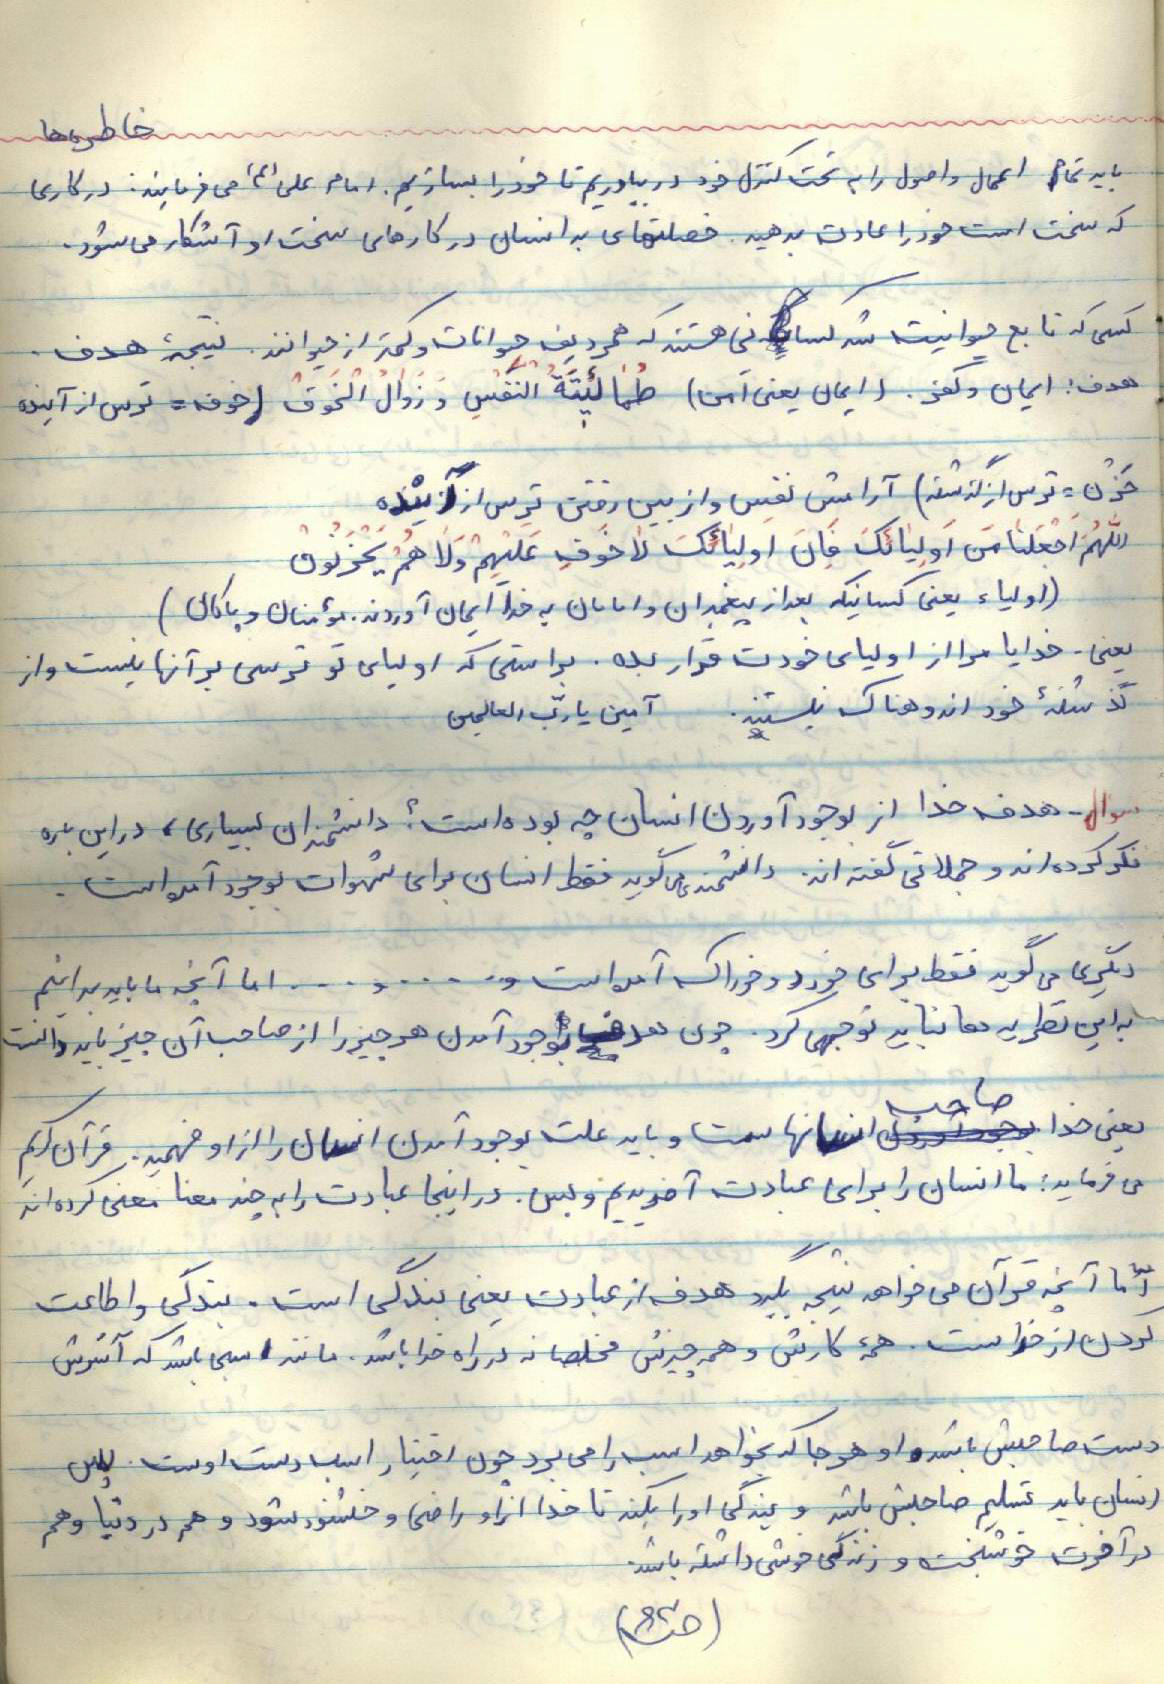 خاطره‌ها
باید تمام اعمال و اصول را به تحت کنترل خود در بیاوریم تا خود را بسازیم. امام علی (ع) می فرمایند: در کاریها
که سخت است خود را عادت بدهید. خصلتهای بد انسان در کارهای سخت او آشکار می شود.
کسی که تابع حیوانیت شد کسانی هستند که همردیف حیوانات و کمتر از حیوانند. نتیجهٔ هدف.
هدف: ایمان و کفر. (ایمان یعنی اَمن) طُمَأنینَةُ النَّفسِ وَ زَوالُ الْخَوفْ (خوف = ترس از آینده
حُزن = ترس از گذشته) آرامش نفس و از بین رفتن ترس از آینده
اللّهُمَ اَجْعَلنا مِنَ اَولِیائِکَ فَاِنَ اولِیٰائَکَ لاٰ خَوَفِ عَلَیْهِمْ وَلاٰ هُمْ یَحْزَنُونْ
(اولیاء یعنی کسانیکه بعد از پیغمبران و امامان به خدا ایمان آوردند. مؤمنان و پاکان)
یعنی - خدایا مرا از اولیای خودت قرار بده. براستی که اولیای تو ترسی بر آنها نیست و از
گذشتهٔ خود اندوهناک نیستند. آمین یا ربّ العالمین
سوال - هدف خدا از بوجود آوردن انسان چه بوده است؟ دانشمندان بسیاری، در این باره
فکر کرده اند و جملاتی گفته اند. دانشمندی می گوید فقط انسان برای شهوات بوجود آمده است.
دیگری می گوید فقط برای خورد و خوراک آمده است و..... و..... اما آنچه ما باید بدانیم
به این نظریه ها نباید توجهی کرد. چون هدف بوجود آمدن هر چیز را از صاحب آن چیز باید دانست
یعنی خدا صاحب انسانهاست و باید علت بوجود آمدن انسان را از او فهمید. قرآن کریم
می فرماید: ما انسان را برای عبادت آفریدیم و بس. در اینجا عبادت را به چند معنا معنی کرده اند
اّما آنچه قرآن می خواهد نتیجه بگیرد هدف از عبادت یعنی بندگی است. بندگی و اطاعت
کردن از خداست. همهٔ کارش و همه چیزش مخلصانه در راه خدا باشد. مانند اسبی باشد که آتوش
دست صاحبش باشد و او هر جا که بخواهد اسب را می برد چون اختیار اسب دست اوست. پس
انسان باید تسلیم صاحبش باشد و بندگی او را بکند تا خدا از او راضی و خشنود شود و هم در دنیا و هم
در آخرت خوشبخت و زندگی خوشی داشته باشد.